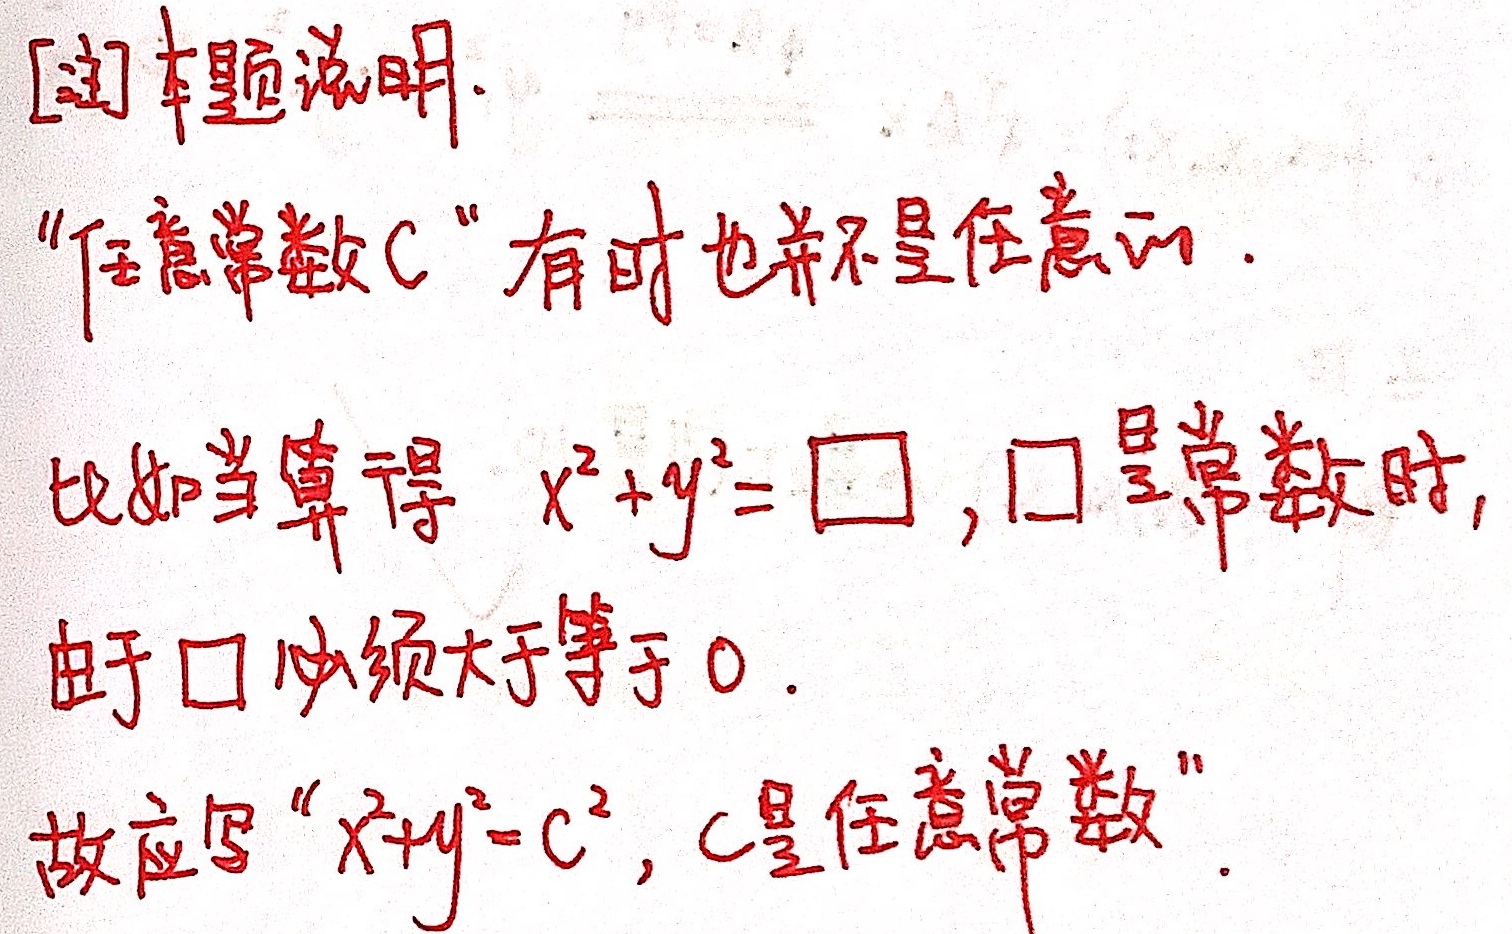 [注]本题说明.
"任意常数C"有时也并不是任意的.
比如当算得 x²+y²=□,□是常数时,
由于□必须大于等于0.
故应写"x²+y²=C²,C是任意常数".